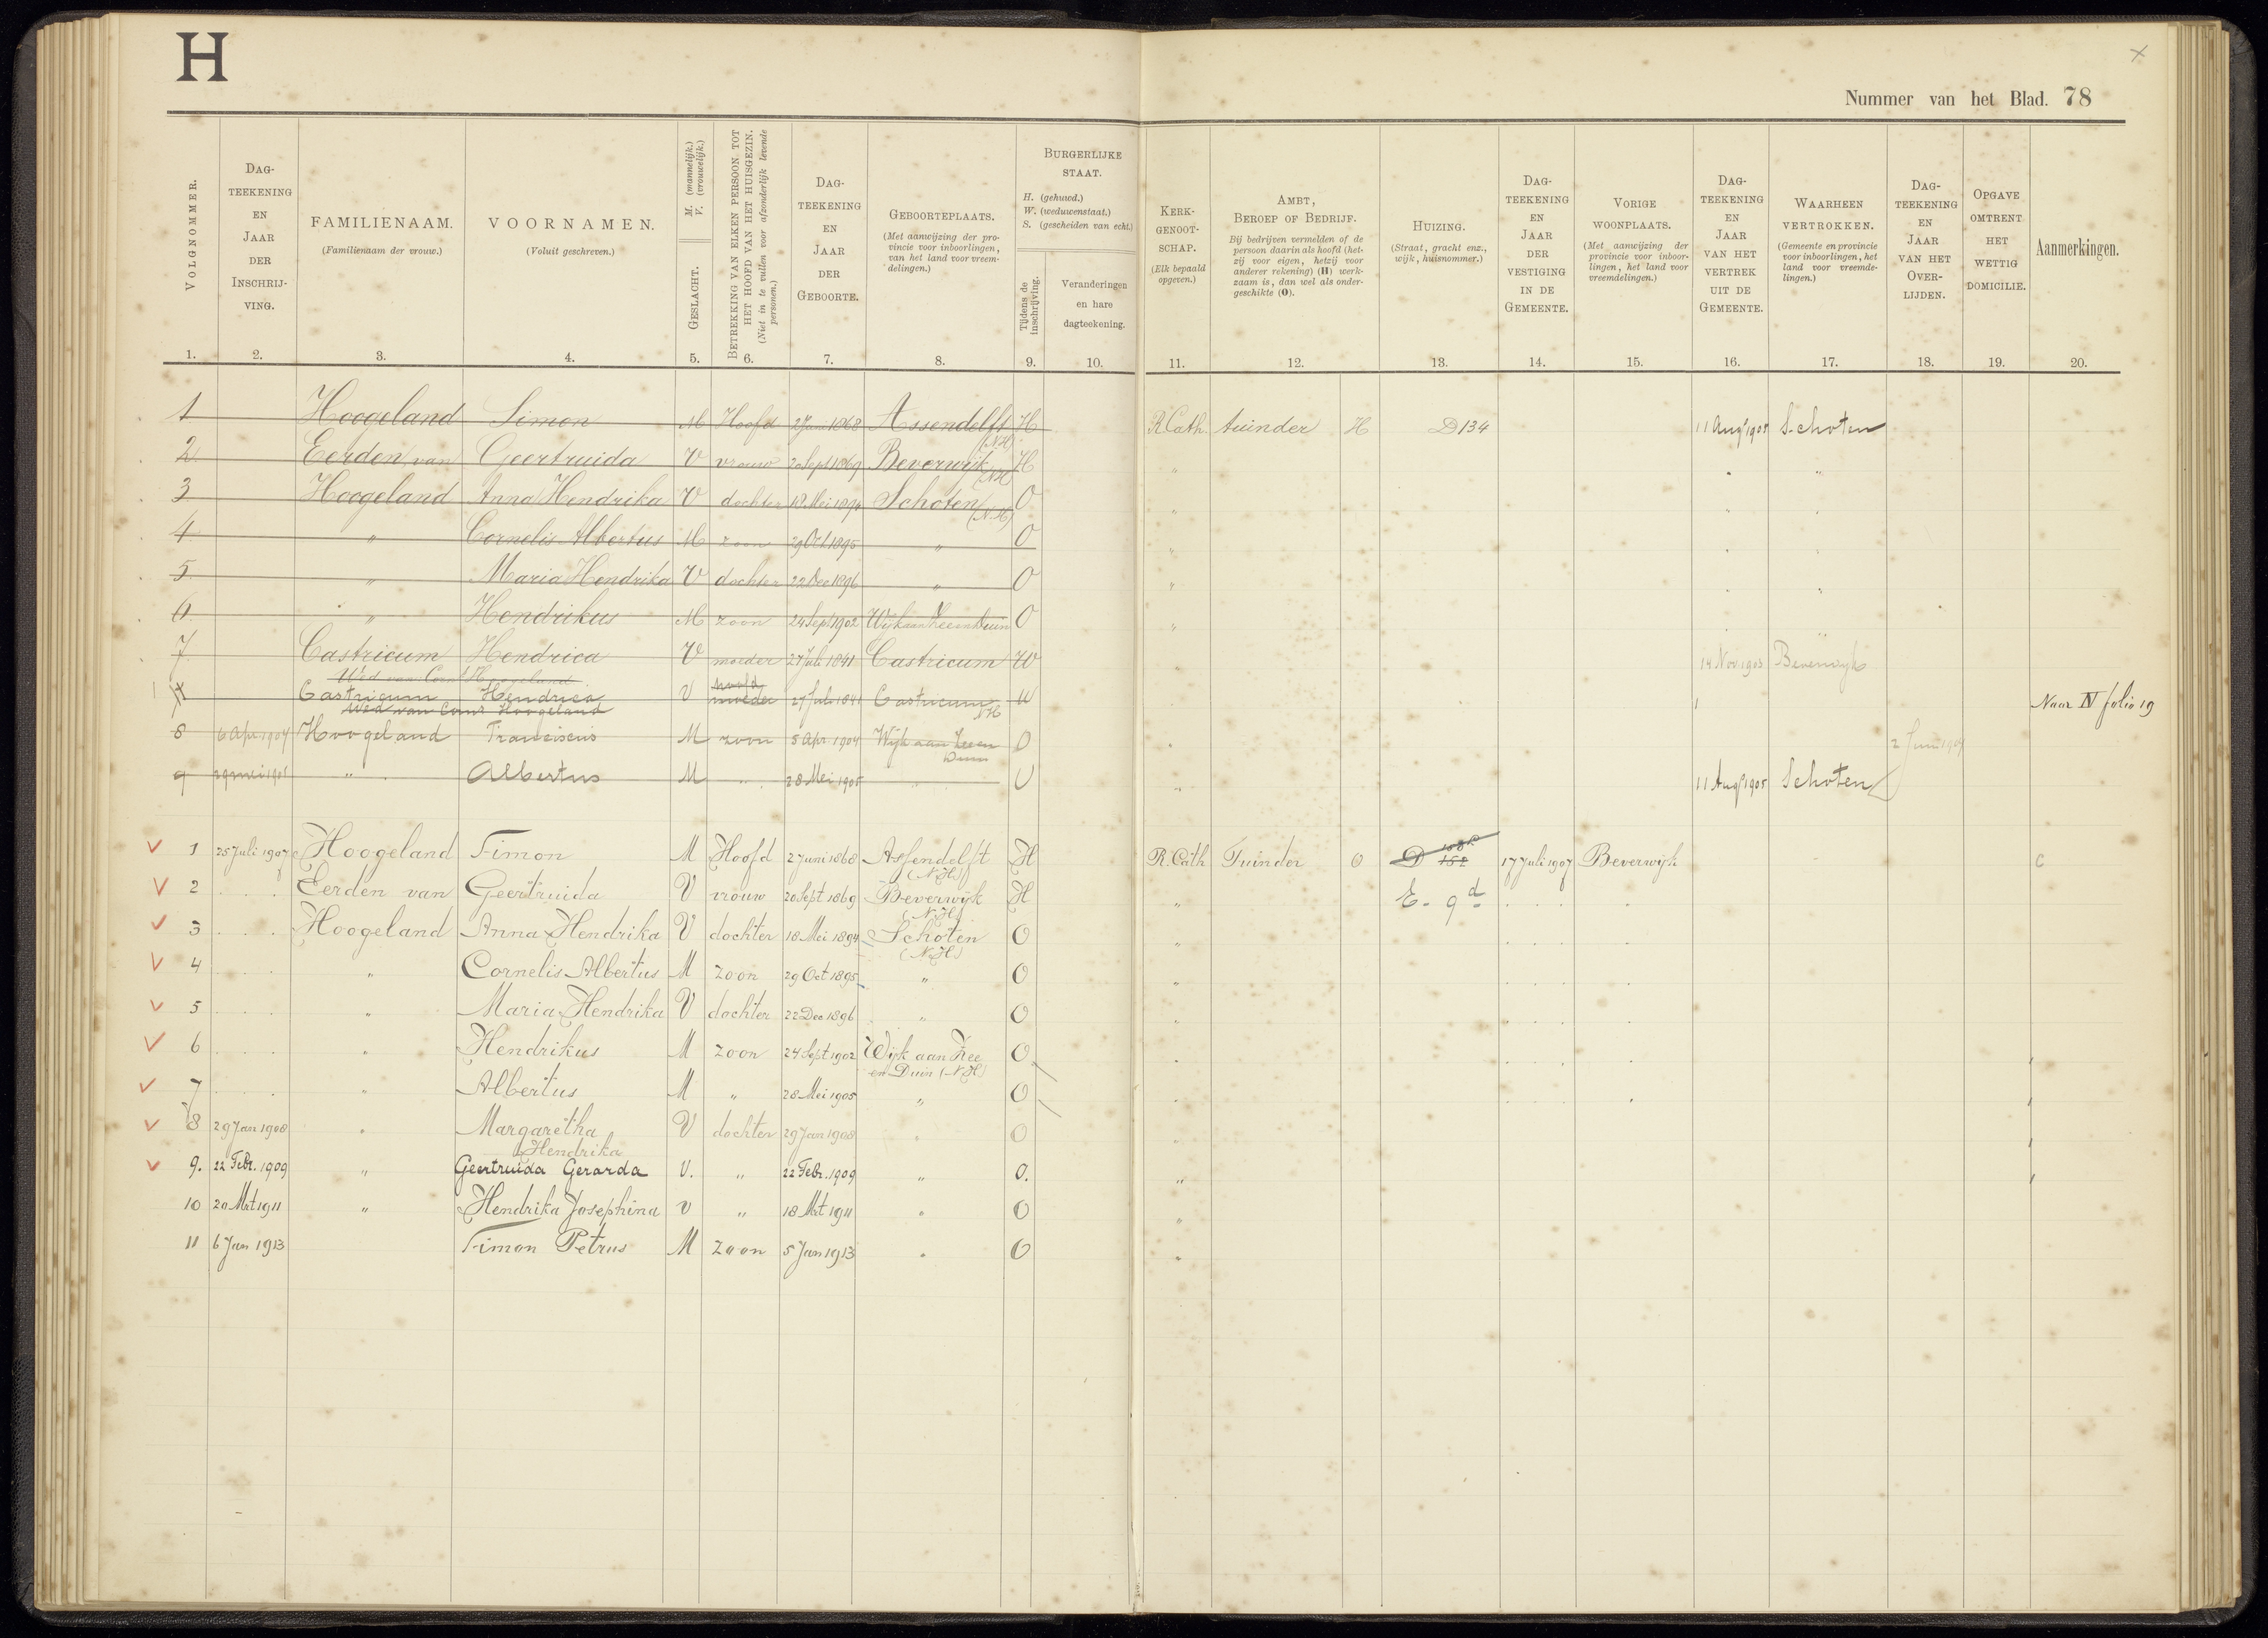 H
Nummer van het Blad. 78
VOLGNOMMER.
DAG-
TEEKENING
EN
JAAR
DER
INSCHRIJ-
VING.
FAMILIENAAM.
(Familienaam der vrouw.)
VOORNAMEN.
(Voluit geschreven.)
GESLACHT. M. (mannelijk.)
V. (vrouwelijk.)
BETREKKING VAN ELKEN PERSOON TOT
HET HOOFD VAN HET HUISGEZIN.
(Niet in te vullen voor afzonderlijk levende
personen.)
DAG-
TEEKENING
EN
JAAR
DER
GEBOORTE.
GEBOORTEPLAATS.
(Met aanwijzing der pro-
vincie voor inboorlingen,
van het land voor vreem-
delingen.)
BURGERLIJKE
STAAT.
H. (gehuwd.)
W. (weduwenstaat.)
S. (gescheiden van echt.)
Tijdens de
inschrijving.
Veranderingen
en hare
dagteekening.
KERK-
GENOOT-
SCHAP.
(Elk bepaald
opgeven.)
AMBT,
BEROEP OF BEDRIJF.
Bij bedrijven vermelden of de
persoon daarin als hoofd (het-
zij voor eigen, hetzij voor
anderer rekening) (H) werk-
zaam is, dan wel als onder-
geschikte (O).
HUIZING.
(Straat, gracht enz.,
wijk, huisnommer.)
DAG-
TEEKENING
EN
JAAR
DER
VESTIGING
IN DE
GEMEENTE.
VORIGE
WOONPLAATS.
(Met aanwijzing der
provincie voor inboor-
lingen, het land voor
vreemdelingen.)
DAG-
TEEKENING
EN
JAAR
VAN HET
VERTREK
UIT DE
GEMEENTE.
WAARHEEN
VERTROKKEN.
(Gemeente en provincie
voor inboorlingen, het
land voor vreemde-
lingen.)
DAG-
TEEKENING
EN
JAAR
VAN HET
OVER-
LIJDEN.
OPGAVE
OMTRENT
HET
WETTIG
DOMICILIE.
Aanmerkingen.
1. 2. 3. 4. 5. 6. 7. 8. 9. 10. 11. 12. 13. 14. 15. 16. 17. 18. 19. 20.
1 Hoogeland Simon M Hoofd 2 Juni 1868 Assendelft (NH) H R.Cath. tuinder H D134 11 Aug 1905 Schoten
2 Eerden van Geertruida V vrouw 20 Sept 1869 Beverwijk (NH) H " " "
3 Hoogeland Anna Hendrika V dochter 18 Mei 1894 Schoten (N.H) O " " "
4 " Cornelis Albertus M zoon 29 Oct 1895 " O " " "
5 " Maria Hendrika V dochter 22 Dec 1896 " O " " "
6 " Hendrikus M zoon 24 Sept 1902 Wijk aan Zee en Duin O " " "
7 Castricum Hendrica V moeder 27 Juli 1841 Castricum W 14 Nov 1903 Beverwijk
Wed van Corns Hoogeland
Castricum Hendrica V hoofd moeder 27 Juli 1841 Castricum NH W Naar IV folio 19
Wed van Corns Hoogeland
8 6 Apr 1904 Hoogeland Franciscus M zoon 5 Apr 1904 Wijk aan Zee en Duin O " 2 Juni 1904
9 29 mei 1905 " Albertus M " 28 Mei 1905 " O " 11 Aug 1905 Schoten
1 25 Juli 1907 Hoogeland Simon M Hoofd 2 Juni 1868 Assendelft (N.H.) H R.Cath Tuinder O D 152 17 Juli 1907 Beverwijk C
2 " Eerden van Geertruida V vrouw 20 Sept 1869 Beverwijk (N.H.) H " E. 9d " "
3 " Hoogeland Anna Hendrika V dochter 18 Mei 1894 Schoten (N.H.) O " " "
4 " " Cornelis Albertus M zoon 29 Oct 1895 " O " " "
5 " " Maria Hendrika V dochter 22 Dec 1896 " O " " "
6 " " Hendrikus M zoon 24 Sept 1902 Wijk aan Zee en Duin (N.H.) O " " "
7 " " Albertus M " 28 Mei 1905 " O " " "
8 29 Jan 1908 " Margaretha Hendrika V dochter 29 Jan 1908 " O "
9. 22 Febr. 1909 " Geertruida Gerarda V. " 22 Febr. 1909 " O. "
10 20 Mrt 1911 " Hendrika Josephina V " 18 Mrt 1911 " O "
11 6 Jan 1913 Simon Petrus M zoon 5 Jan 1913 " O "